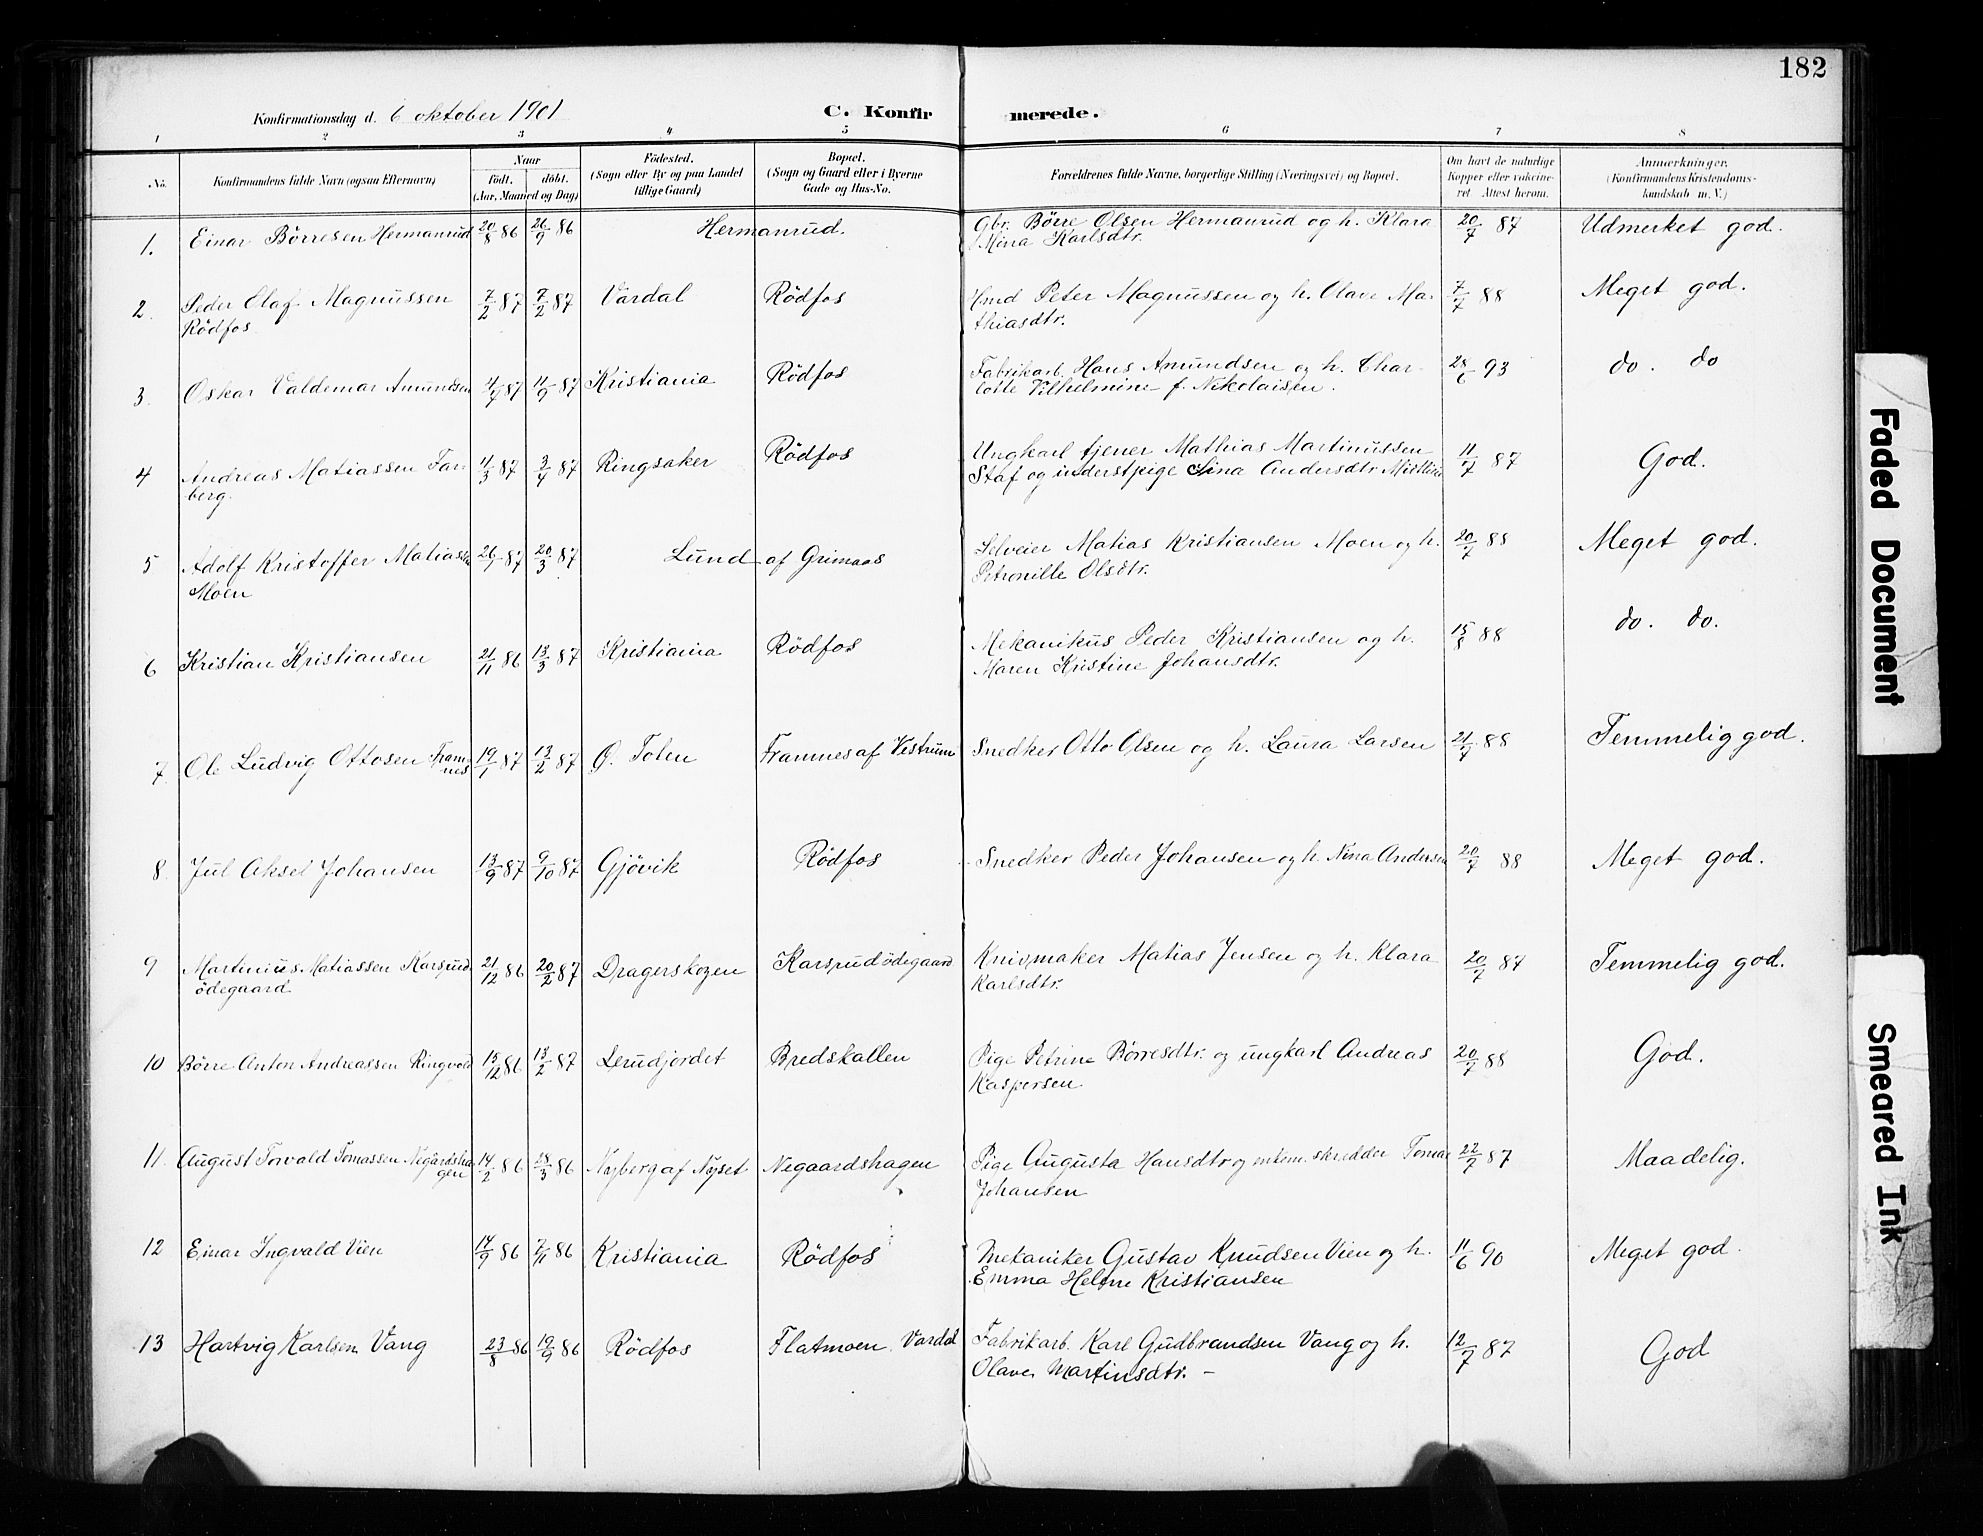 182
Konfirmationsdag d. 6 oktober 1901 C. Konfirmerede.
1 2 3 4 5 6 7 8
No. Konfirmandens fulde Navn (ogsaa Efternavn) Naar födt. döbt. (Aar, Maaned og Dag) Födested. (Sogn eller By og paa Landet tillige Gaard) Bopæl. (Sogn og Gaard eller i Byerne Gade og Hus-No. Forældrenes fulde Navne, borgerlige Stilling (Næringsvei) og Bopæl. Om havt de naturlige Kopper eller vaccineret. Attest herom. Anmærkninger. (Konfirmandens Kristendomskundskab m. V.)
1. Einar Börresen Hermanrud 20/8 86 26/9 86 Hermanrud. Gbr. Börre Olsen Hermanrud og h. Klara 20/7 87 Udmerket god.
Mina Karlsdtr.
2. Peder Olaf Magnussen 7/2 87 7/2 87 Vardal Rödfos Hmd Peter Magnussen og h. Olave Ma- 7/7 88 Meget god.
Rödfos thiasdtr.
3. Oskar Valdemar Amundsen 4/7 87 11/9 87 Kristiania Rödfos Fabrikarb. Hans Amundsen og h. Char- 28/6 93 do. do
lotte Vilhelmine f. Nikolaisen.
4 Andreas Matiassen Far- 4/3 87 3/4 87 Ringsaker Rödfos Ungkarl tjener Mathias Martinussen 11/7 87 God.
berg. Staf og inderstpige Sina Andersdtr.
5 Adolf Kristoffer Matiassen 26/1 87 20/3 87 Lund af Grimaas Selveier Matias Kristiansen Moen og h. 20/7 88 Meget god.
Moen Petronille Olsdtr.
6 Kristian Kristiansen 21/11 86 13/3 87 Kristiania Rödfos Mekanikus Peder Kristiansen og h. 15/8 88 do. do.
Maren Kristine Johansdtr.
7. Ole Ludvig Ottosen Fram- 19/1 87 13/2 87 Ø. Toten Framnes af Vestrum Snedker Otto Olsen og h. Laura Larsen 21/7 88 Temmelig god.
nes
8. Jul Aksel Johansen 13/9 87 9/10 87 Gjövik Rödfos Snedker Peder Johansen og h. Nina Andersen 20/7 88 Meget god.
9 Martinius Matiassen Karsrud 21/12 86 20/2 87 Dragerskogen Karsrudödegaard Knivmaker Matias Jensen og h. Klara 20/7 87 Temmelig god.
ödegaard Karlsdtr.
10 Börre Anton Andreassen Ringvold 15/12 86 13/2 87 Lerudjordet Bredskallen Pige Petrine Börresdtr. og ungkarl Andreas 20/7 88 God.
Kaspersen.
11. August Torvald Tomassen Negårdsha- 14/2 86 28/3 86 Nyberg af Nyset Negaardshagen Pige Augusta Hansdtr og enkem. skredder Tomas 22/7 87 Maadelig.
gen Johansen
12 Einar Ingvald Vien 17/9 86 7/11 86 Kristiania Rödfos Mekaniker Gustav Knudsen Vien og h. 11/6 90 Meget god.
Emma Helene Kristiansen
13 Hartvig Karlsen Vang 23/8 86 19/9 86 Rödfos Flatmoen. Vardal Fabrikarb. Karl Gudbrandsen Vang og h. 12/7 87 God
Olave Martinsdtr. –
Faded Document
Smeared Ink